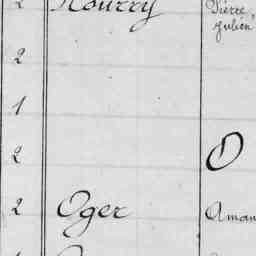 2 Nourry Pierre,
Julien
2
1
2 O
2 Oger Aman